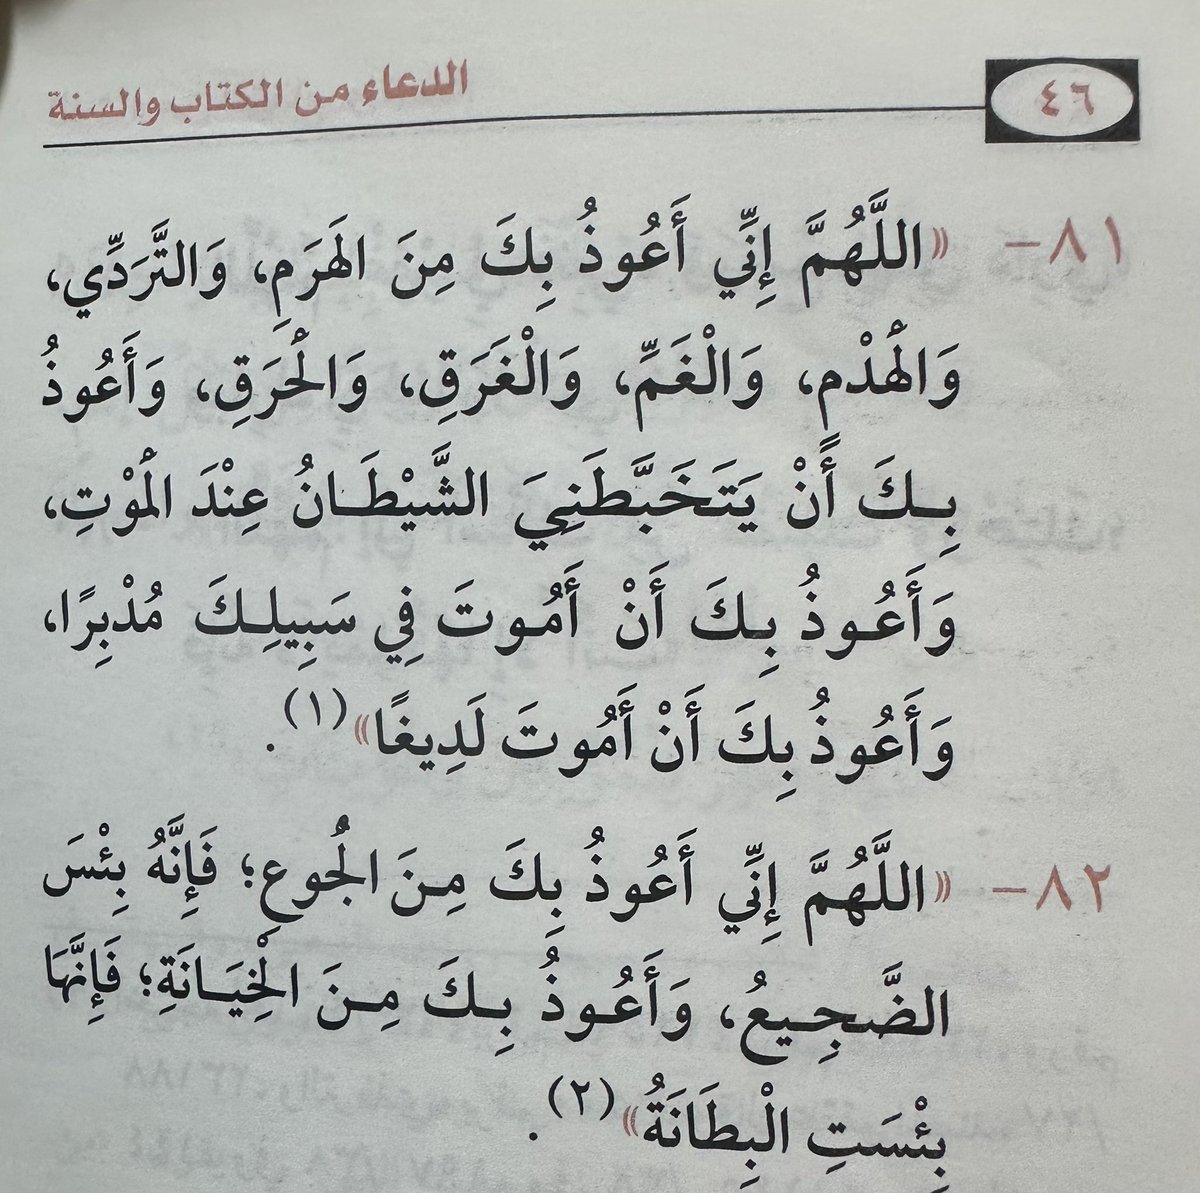 ٤٦ الدعاء من الكتاب والسنة
٨١- «اللَّهُمَّ إِنِّي أَعُوذُ بِكَ مِنَ الهَرَمِ، وَالتَّرَدِّي،
وَالهَدْمِ، وَالْغَمِّ، وَالْغَرَقِ، وَالْحَرَقِ، وَأَعُوذُ
بِكَ أَنْ يَتَخَبَّطَنِيَ الشَّيْطَانُ عِنْدَ الْمَوْتِ،
وَأَعُوذُ بِكَ أَنْ أَمُوتَ فِي سَبِيلِكَ مُدْبِرًا،
وَأَعُوذُ بِكَ أَنْ أَمُوتَ لَدِيغًا»(١).
٨٢- «اللَّهُمَّ إِنِّي أَعُوذُ بِكَ مِنَ الْجُوعِ؛ فَإِنَّهُ بِئْسَ
الضَّجِيعُ، وَأَعُوذُ بِكَ مِنَ الْخِيَانَةِ؛ فَإِنَّهَا
بِئْسَتِ الْبِطَانَةُ»(٢).